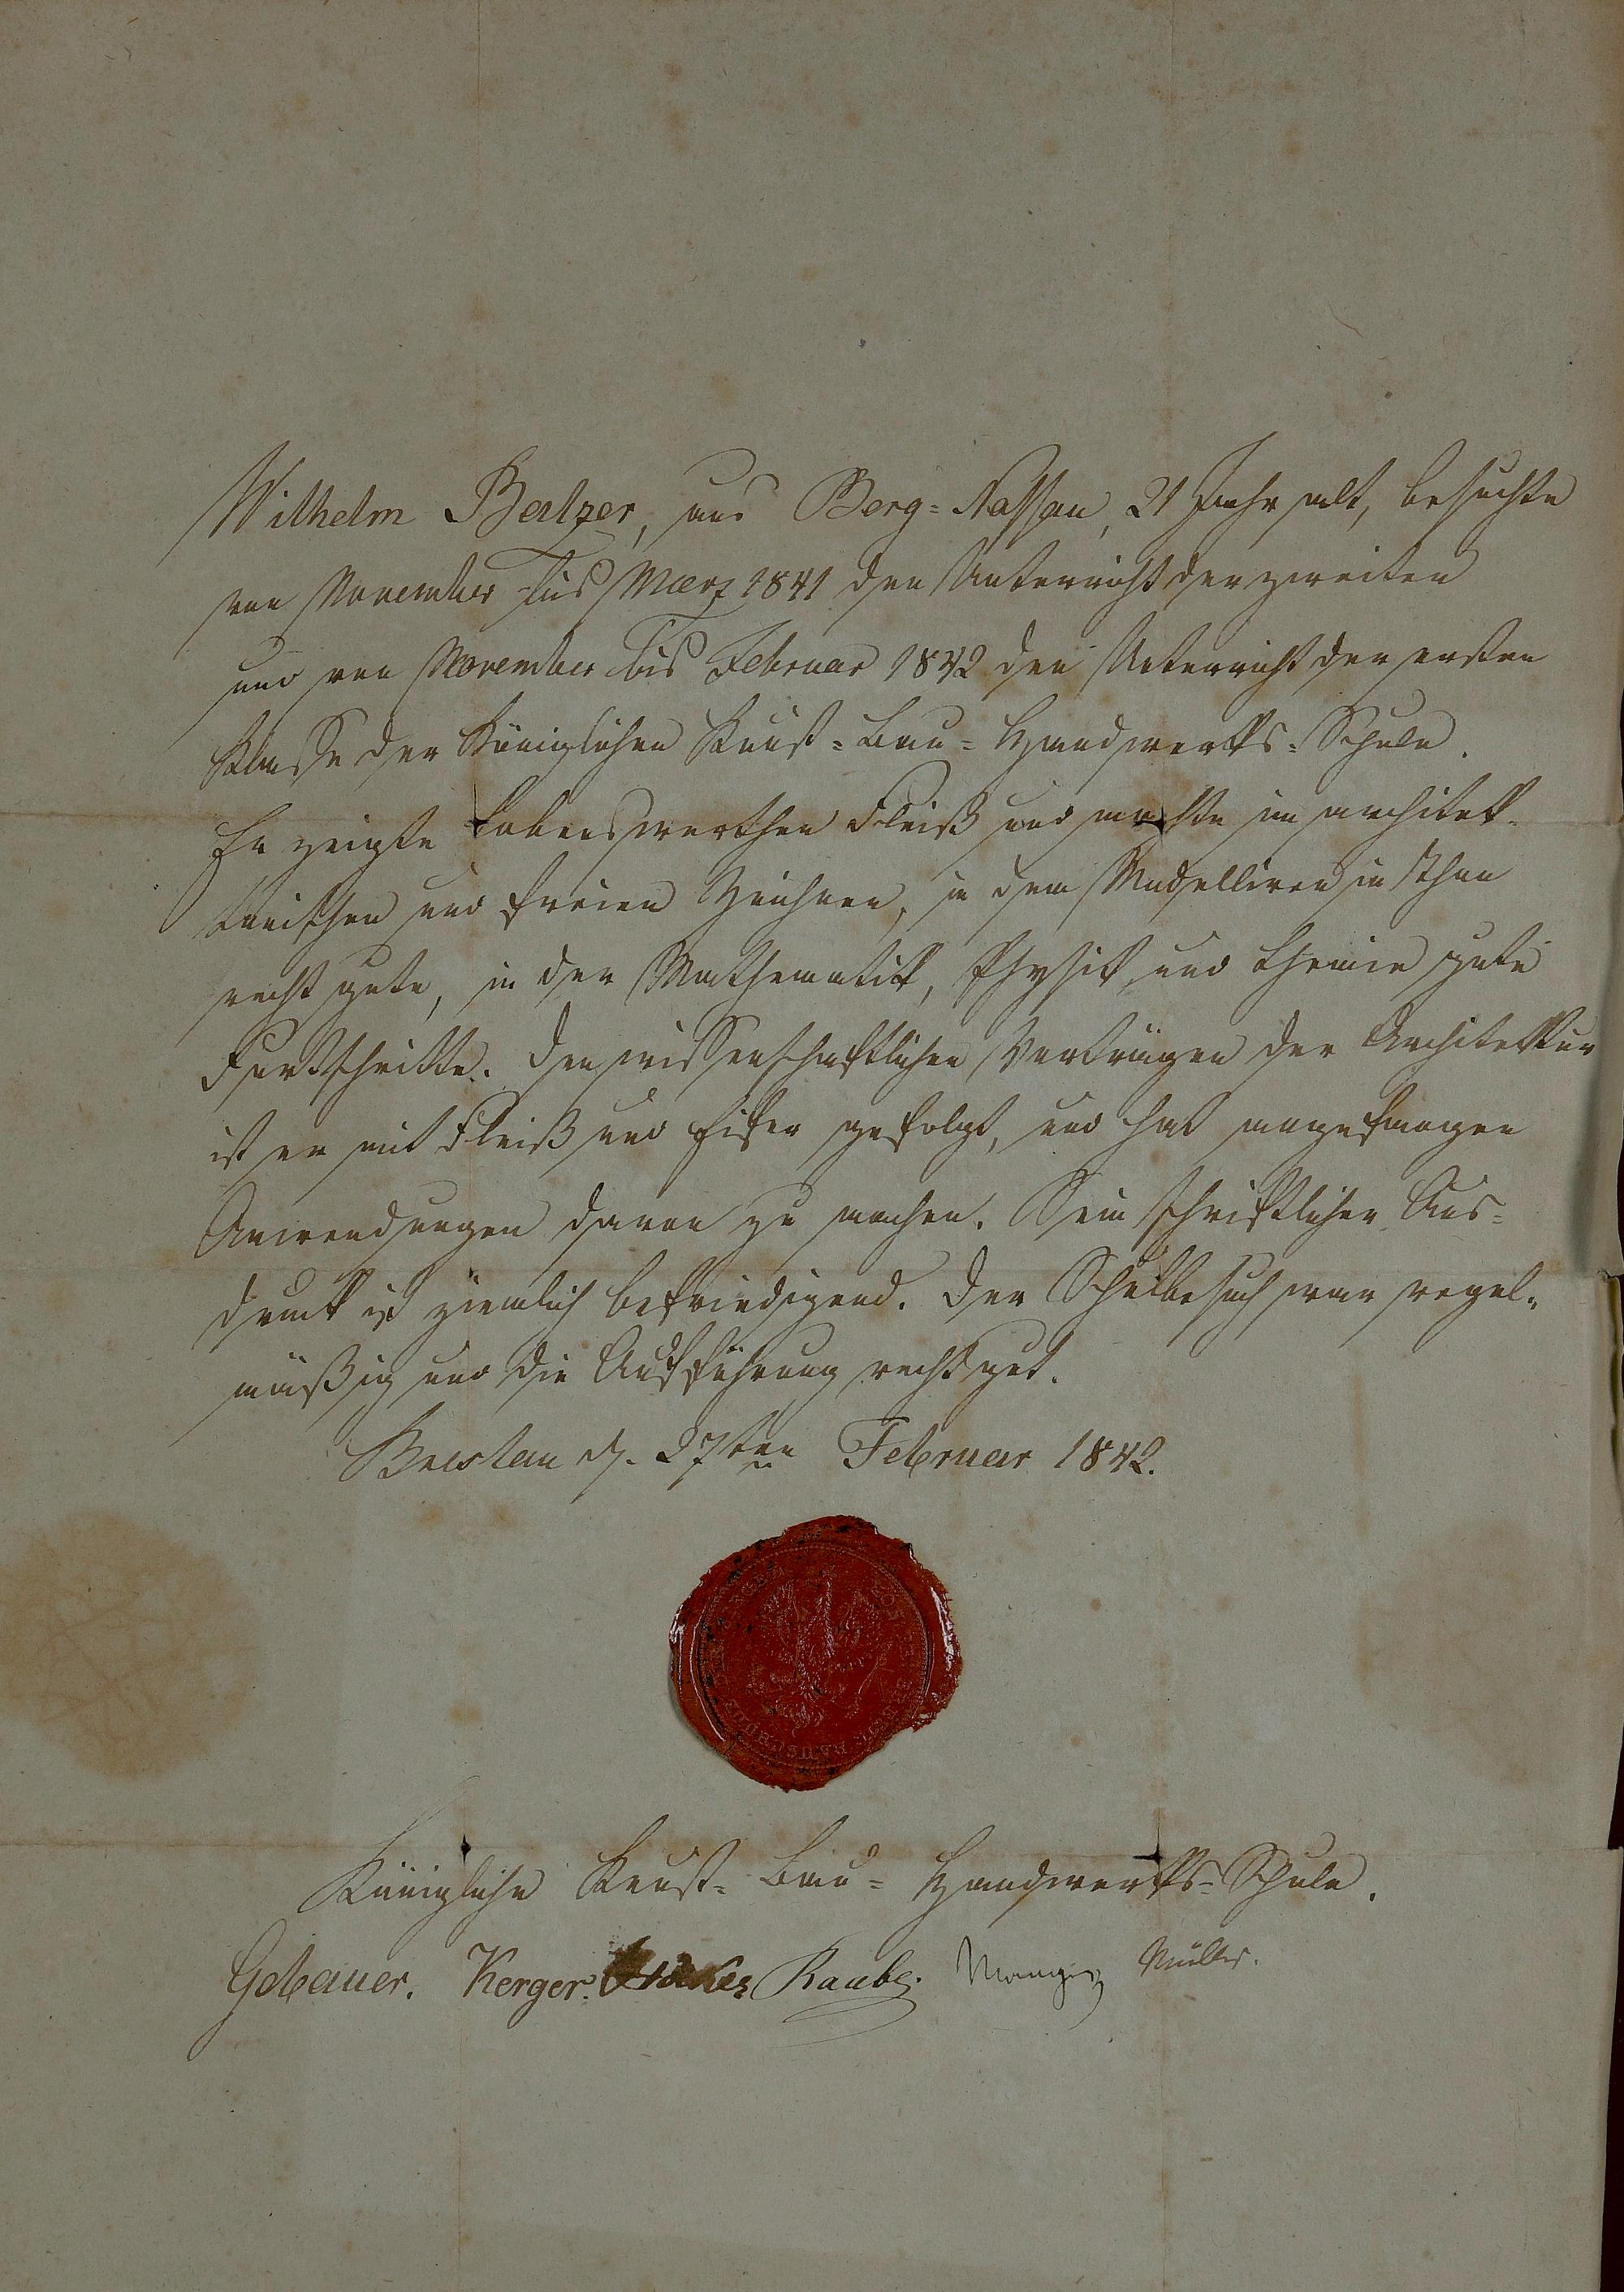 Wilhelm Balzer, aus Berg=Nassau, 21 Jahr alt, besuchte
von November bis Maerz 1841 den Unterricht der zweiten
und von November bis Februar 1842 den Unterricht der ersten
Klasse der Königlichen Kunst=Bau=Handwerks=Schule.
Er zeigte lobenswerthen Fleiß und machte im architek=
tonischen und freien Zeichnen, in dem Modelliren in Thon
recht gute, in der Mathematik, Physik und Chemie gute
Fortschritte. Den wissenschaftlichen Vorträgen der Architektur
ist er mit Fleiß und Eifer gefolgt, und hat angefangen
Anwendungen davon zu machen. Sein schriftlicher Aus=
druck ist ziemlich befriedigend. Der Schulbesuch war regel=
mäßig und die Aufführung recht gut.
Breslau d. 27ten Februar 1842.
Königliche Kunst=Bau=Handwerks=Schule.
Gebauer. Kerger. Raabe. Manger Müller.